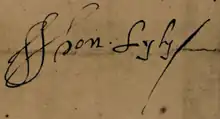 Jhon Lyly